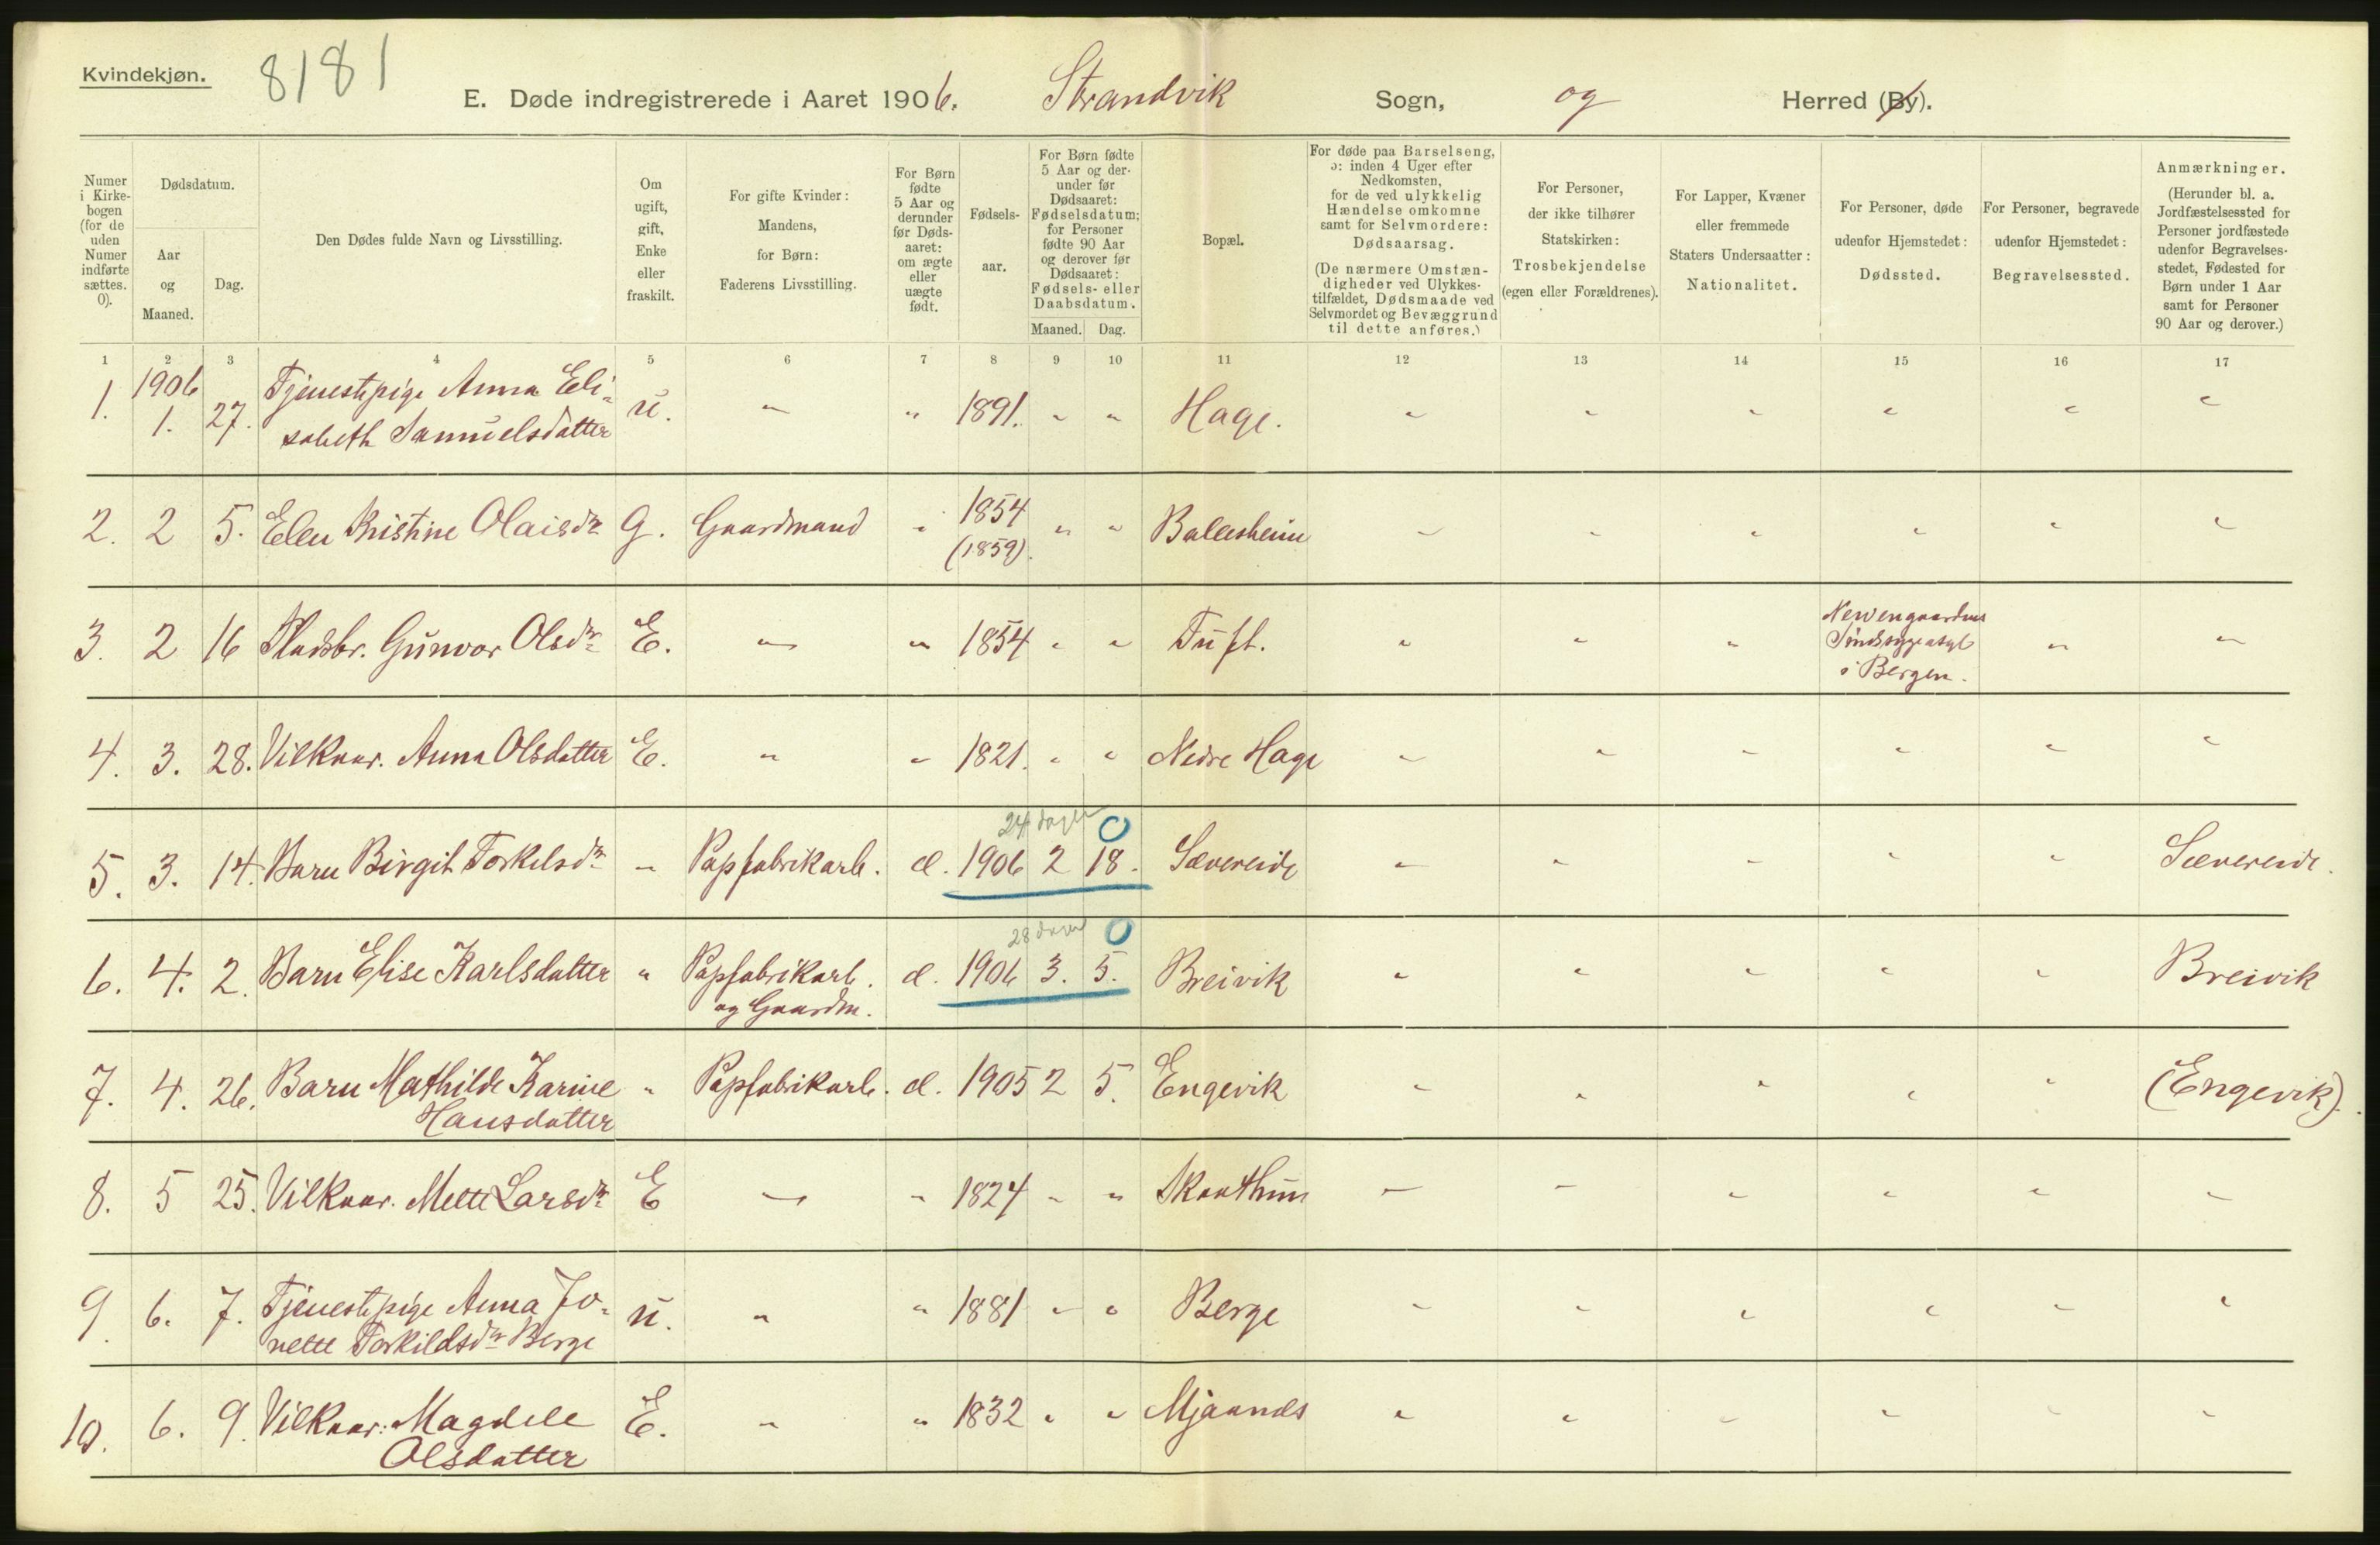 Kvindekjøn.
8181
E. Døde indregistrerede i Aaret 1906. Strandvik Sogn, og Herred (By).
Numer i Kirkebogen (for de uden Numer indførte sættes. 0).
Dødsdatum.
Aar og Maaned.
Dag.
Den Dødes fulde Navn og Livsstilling.
Om ugift, gift, Enke eller fraskilt.
For gifte Kvinder: Mandens, for Børn: Faderens Livsstilling.
For Børn fødte 5 Aar og derunder før Dødsaaret: om ægte eller uægte født.
Fødselsaar.
For Børn fødte 5 Aar og derunder før Dødsaaret: Fødselsdatum; for Personer fødte 90 Aar og derover før Dødsaaret: Fødsels- eller Daabsdatum.
Maaned. Dag.
Bopæl.
For døde paa Barselseng, ɔ: inden 4 Uger efter Nedkomsten, for de ved ulykkelig Hændelse omkomne samt for Selvmordere: Dødsaarsag.
(De nærmere Omstændigheder ved Ulykkestilfældet, Dødsmaade ved Selvmordet og Bevæggrund til dette anføres.)
For Personer, der ikke tilhører Statskirken: Trosbekjendelse (egen eller Forældrenes).
For Lapper, Kvæner eller fremmede Staters Undersaatter: Nationalitet.
For Personer, døde udenfor Hjemstedet: Dødssted.
For Personer, begravede udenfor Hjemstedet: Begravelsessted.
Anmærkninger.
(Herunder bl. a. Jordfæstelsessted for Personer jordfæstede udenfor Begravelsesstedet, Fødested for Børn under 1 Aar samt for Personer 90 Aar og derover.)
1 2 3 4 5 6 7 8 9 10 11 12 13 14 15 16 17
1. 1906 1. 27. Tjenestepige Anna Elisabeth Samuelsdatter u. " " 1891. " " Hage. " " " " " "
2. 2 5. Elen Kristine Olaisdr G. Gaardmand " 1854 (1859). " " Ballesheim " " " " " "
3. 2 16 Pladsbr. Gunvor Olsdr E. " " 1854 " " Tuft. " " " Nevengaardens Sindssygeasyl i Bergen. " "
4. 3. 28. Vilkaar. Anna Olsdatter E. " " 1821. " " Nedre Hage " " " " " "
24 dage 0
5. 3. 14. Barn Birgit Torkelsdr " Papfabrikarb. æ. 1906 2 18. Sævereide " " " " " Sævereide.
28 dage 0
6. 4. 2. Barn Elise Karlsdatter " Papfabrikarb. og Gaardm. æ. 1906 3. 5. Breivik " " " " " Breivik
7. 4. 26. Barn Mathilde Karine Hansdatter " Papfabrikarb. æ. 1905 2 5. Engevik " " " " " (Engevik).
8. 5 25. Vilkaar. Mette Larsdr E " " 1824 " " Skaathun " " " " " "
9. 6. 7. Tjenestepige Anna Jonette Torkildsdr Berge u. " " 1881 " " Berge " " " " " "
10. 6. 9. Vilkaar: Magdele Olsdatter E. " " 1832 " " Mjaanes " " " " " "